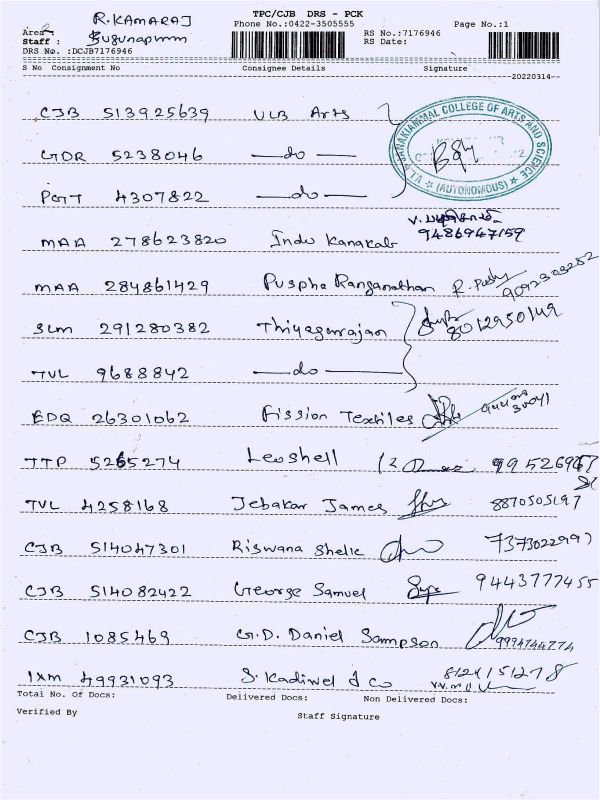 R.KAMARAJ TPC/CJB DRS - PCK
Area: Phone No.:0422-3505555 Page No.:1
Staff : RS No.:7176946
DRS No. :DCJB7176946 RS Date:
S No Consignment No Consignee Details Signature
20220314
CJB 513925639 VLB Arts
VLB JANAKIAMMAL COLLEGE OF ARTS AND SCIENCE
(AUTONOMOUS)
GDR 5238046 —do—
PGT 4307822 —do—
MAA 278623820 Indu Kanakab 9486947159
MAA 284861429 Puspha Ranganathan
SLM 291280382 Thiyagarajan 8012950149
TVL 9688842 —do—
EDQ 26301062 Fission Textiles
TTP 5265274 Leoshell
TVL 4258168 Jebakar James 8870505197
CJB 514047301 Riswana Shelic 7373022997
CJB 514082422 George Samuel 9443777455
CJB 1085469 G.D. Daniel Sampson 9994744774
IXM 49931093 S. Kadiwel & co
Total No. Of Docs: Delivered Docs: Non Delivered Docs:
Verified By Staff Signature